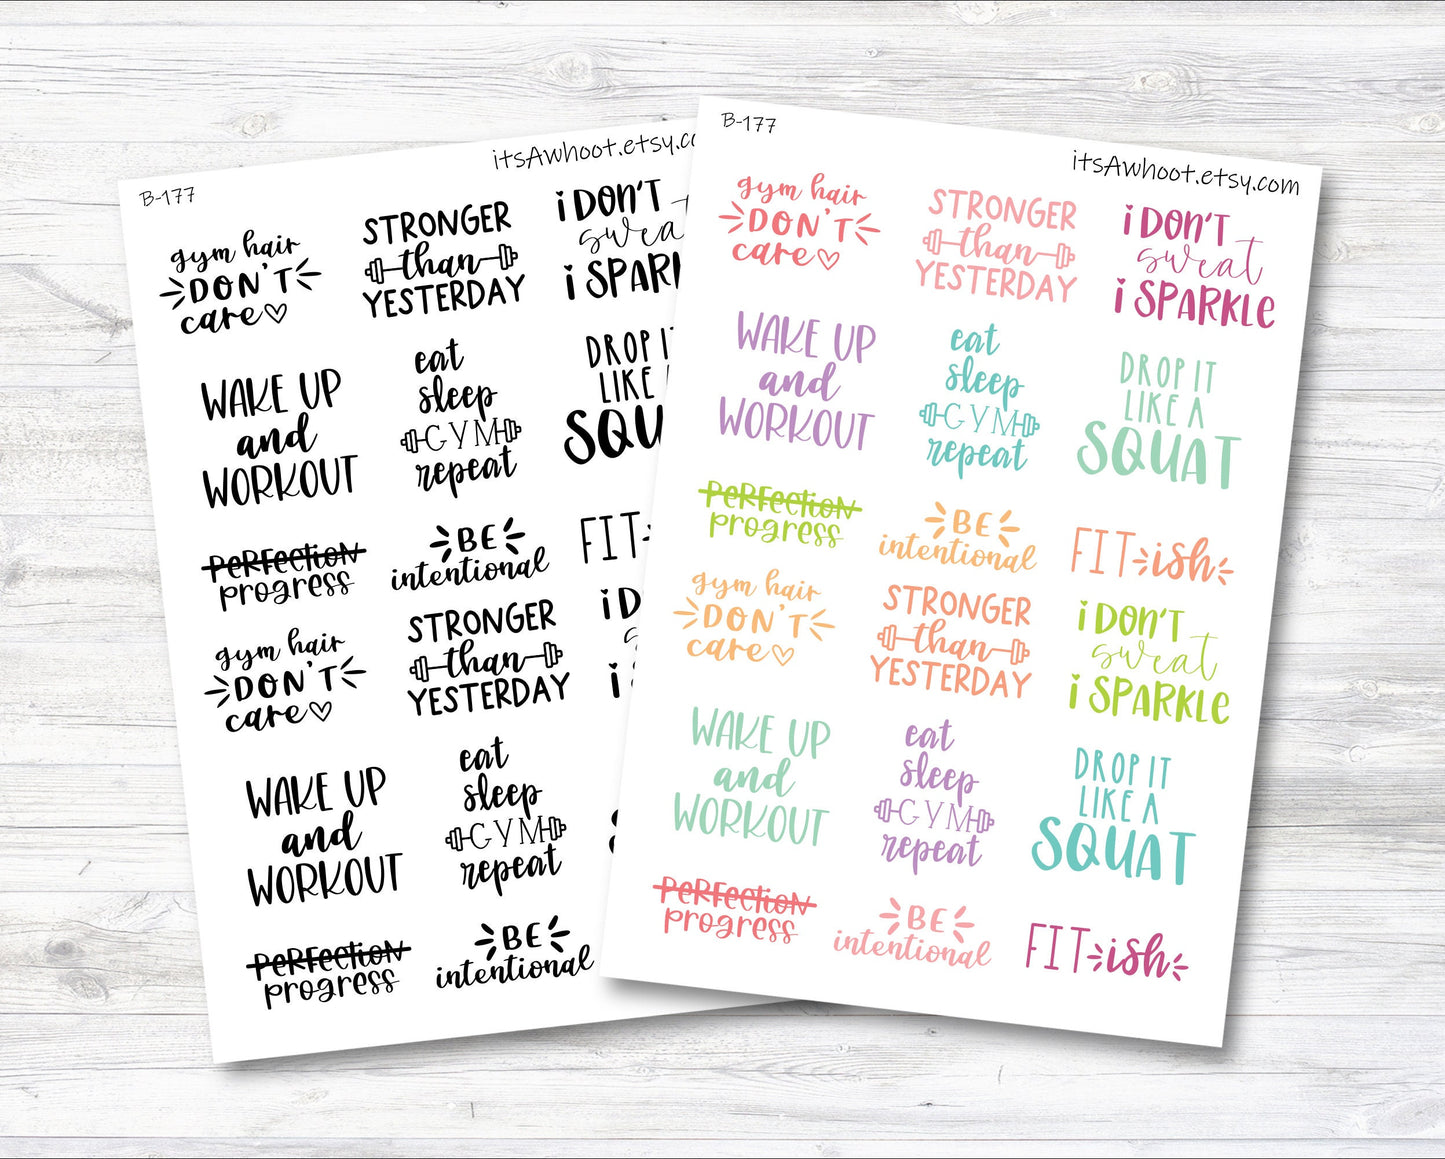 B-177
itsAwhoot.etsy.co
gym hair
DON'T
care
STRONGER
than
YESTERDAY
i DON'T
swea
i SPARK
WAKE UP
and
WORKOUT
eat
sleep
GYM
repeat
DROP IT
LIKE
SQU
PERFECTION
progress
BE
intentional
FIT
gym hair
DON'T
care
STRONGER
than
YESTERDAY
i D
i
WAKE UP
and
WORKOUT
eat
sleep
GYM
repeat
PERFECTION
progress
BE
intentional
B-177
itsAwhoot.etsy.com
gym hair
DON'T
care
STRONGER
than
YESTERDAY
i DON'T
sweat
i SPARKLE
WAKE UP
and
WORKOUT
eat
sleep
GYM
repeat
DROP IT
LIKE A
SQUAT
PERFECTION
progress
BE
intentional
FIT-ish
gym hair
DON'T
care
STRONGER
than
YESTERDAY
i DON'T
sweat
i SPARKLE
WAKE UP
and
WORKOUT
eat
sleep
GYM
repeat
DROP IT
LIKE A
SQUAT
PERFECTION
progress
BE
intentional
FIT-ish